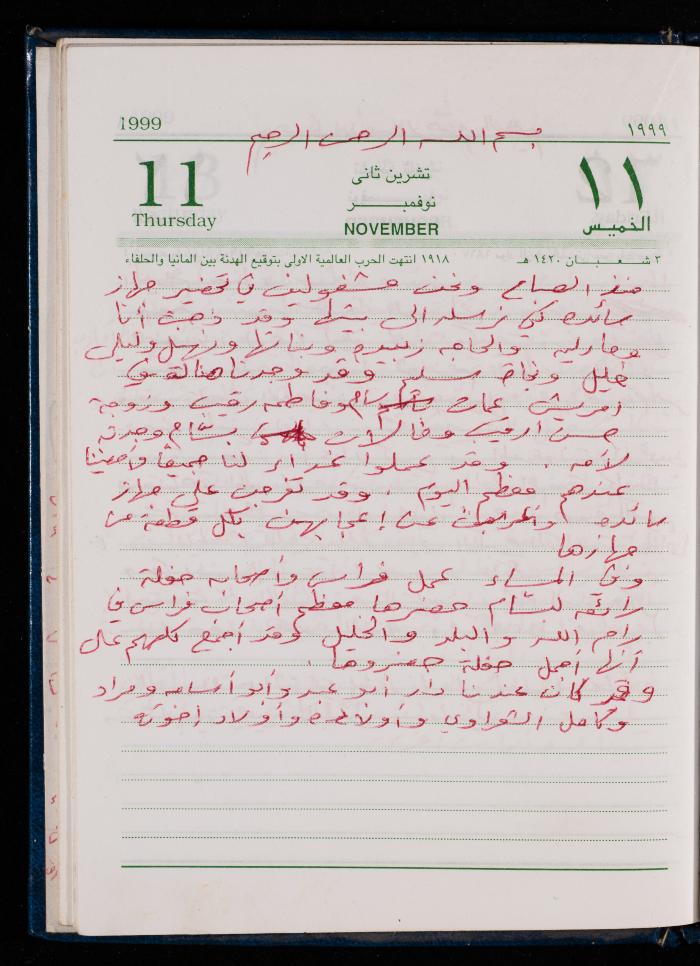 1999 بسم الله الرحمن الرحيم ١٩٩٩
11 تشرين ثانى ١١
نوفمبر
Thursday NOVEMBER الخميس
٣ شعبان ١٤٢٠ هـ ١٩١٨ انتهت الحرب العالمية الاولى بتوقيع الهدنة بين المانيا والحلفاء
منذ الصباح ونحن مشغولين في تحضير جهاز
سائده كي نرسله الى بيتها وقد ذهبت أنا
وماريه والحاجه زبيده وبناتها ونهيل وليلى
خليل ونجاة وقد وجدنا هنالك
عمات بسام وفاطمه وزوجة
حسن بسام وجدته
لأمه . وقد عملوا غداء لنا جميعا وأمضينا
عندهم معظم اليوم . وقد تفرجت على جهاز
سائده عن إعجابهن بكل قطعة من
جهازها
وفي المساء عمل فراس وأصحابه حفلة
رائعه لبسام حضرها معظم أصحاب فراس في
رام الله والبلد والخليل وقد أجمع كلهم على
أنها أجمل حفلة حضروها .
وقد كان عندنا دار أبو عبد وأبو أسامه ومراد
وكامل الشعراوي وأولاده وأولاد إخوته